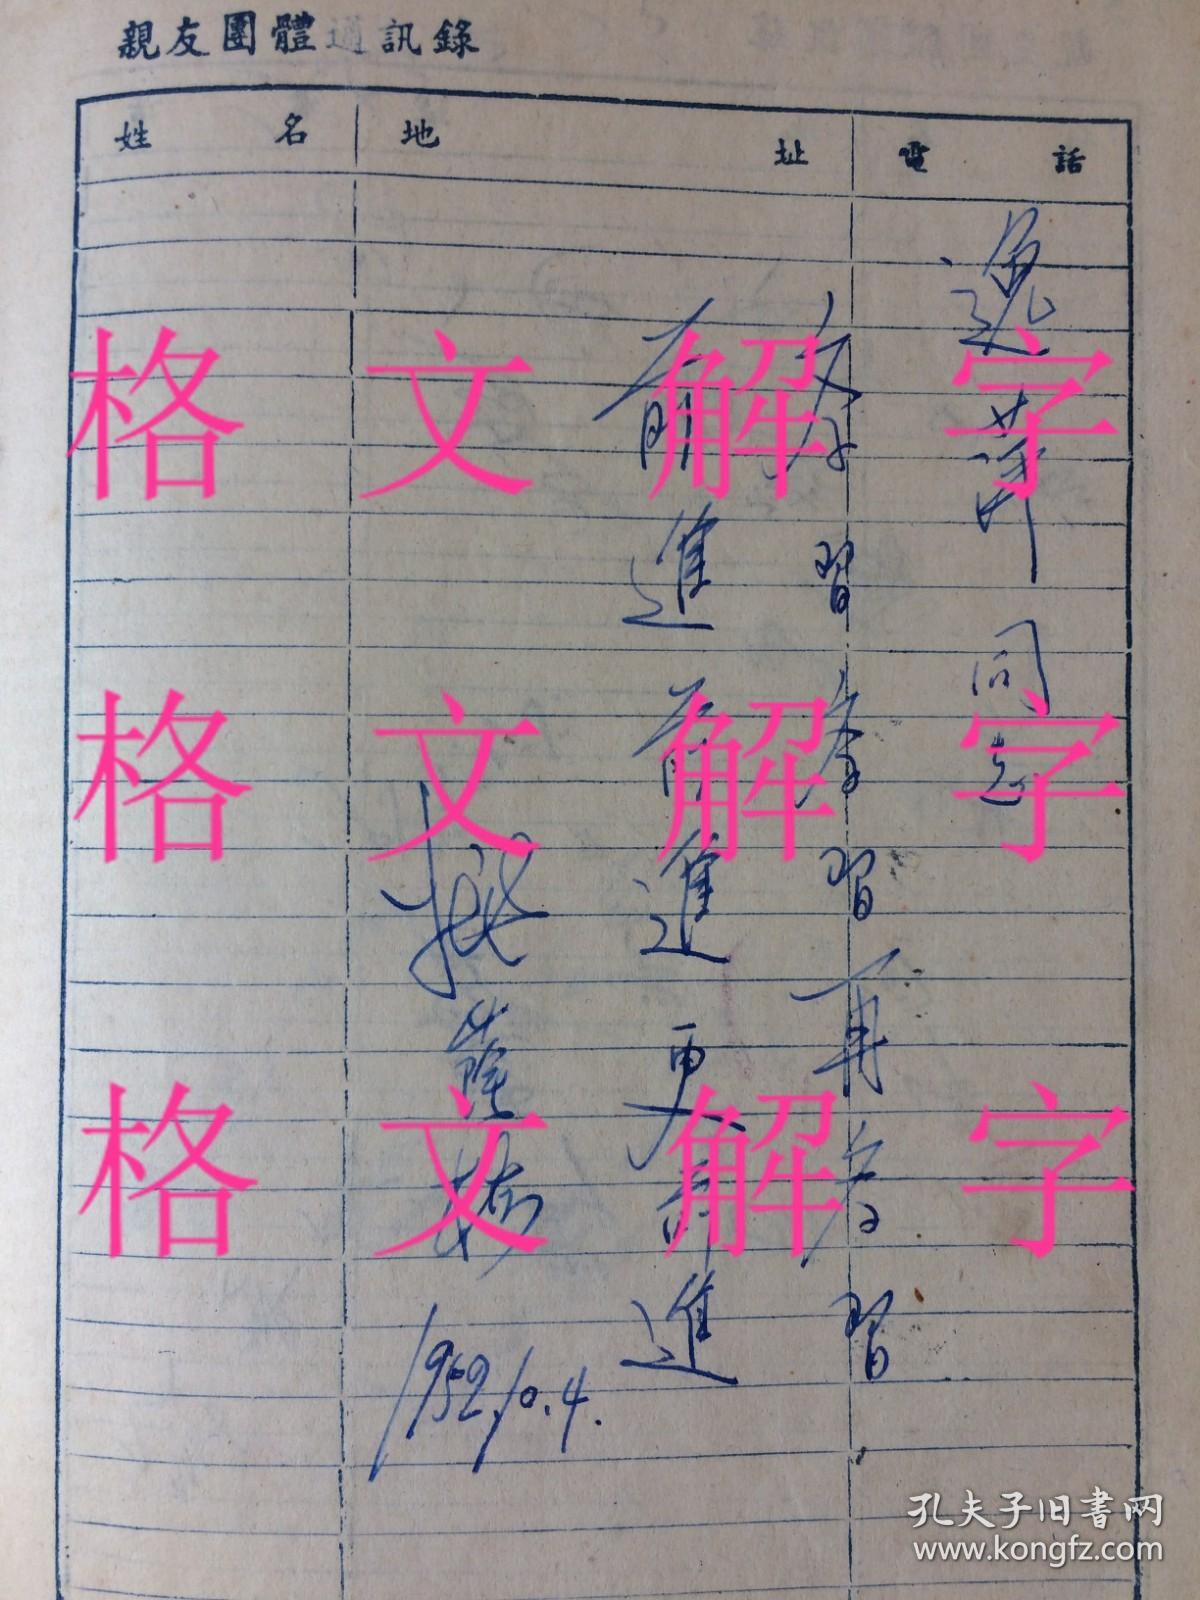 親友團體通訊錄
姓名 地址 電話
逸萍同志
學習學習再學習
前進前進更前進
蔭
1952.10.4.
格文解字
格文解字
格文解字
孔夫子旧书网
www.kongfz.com